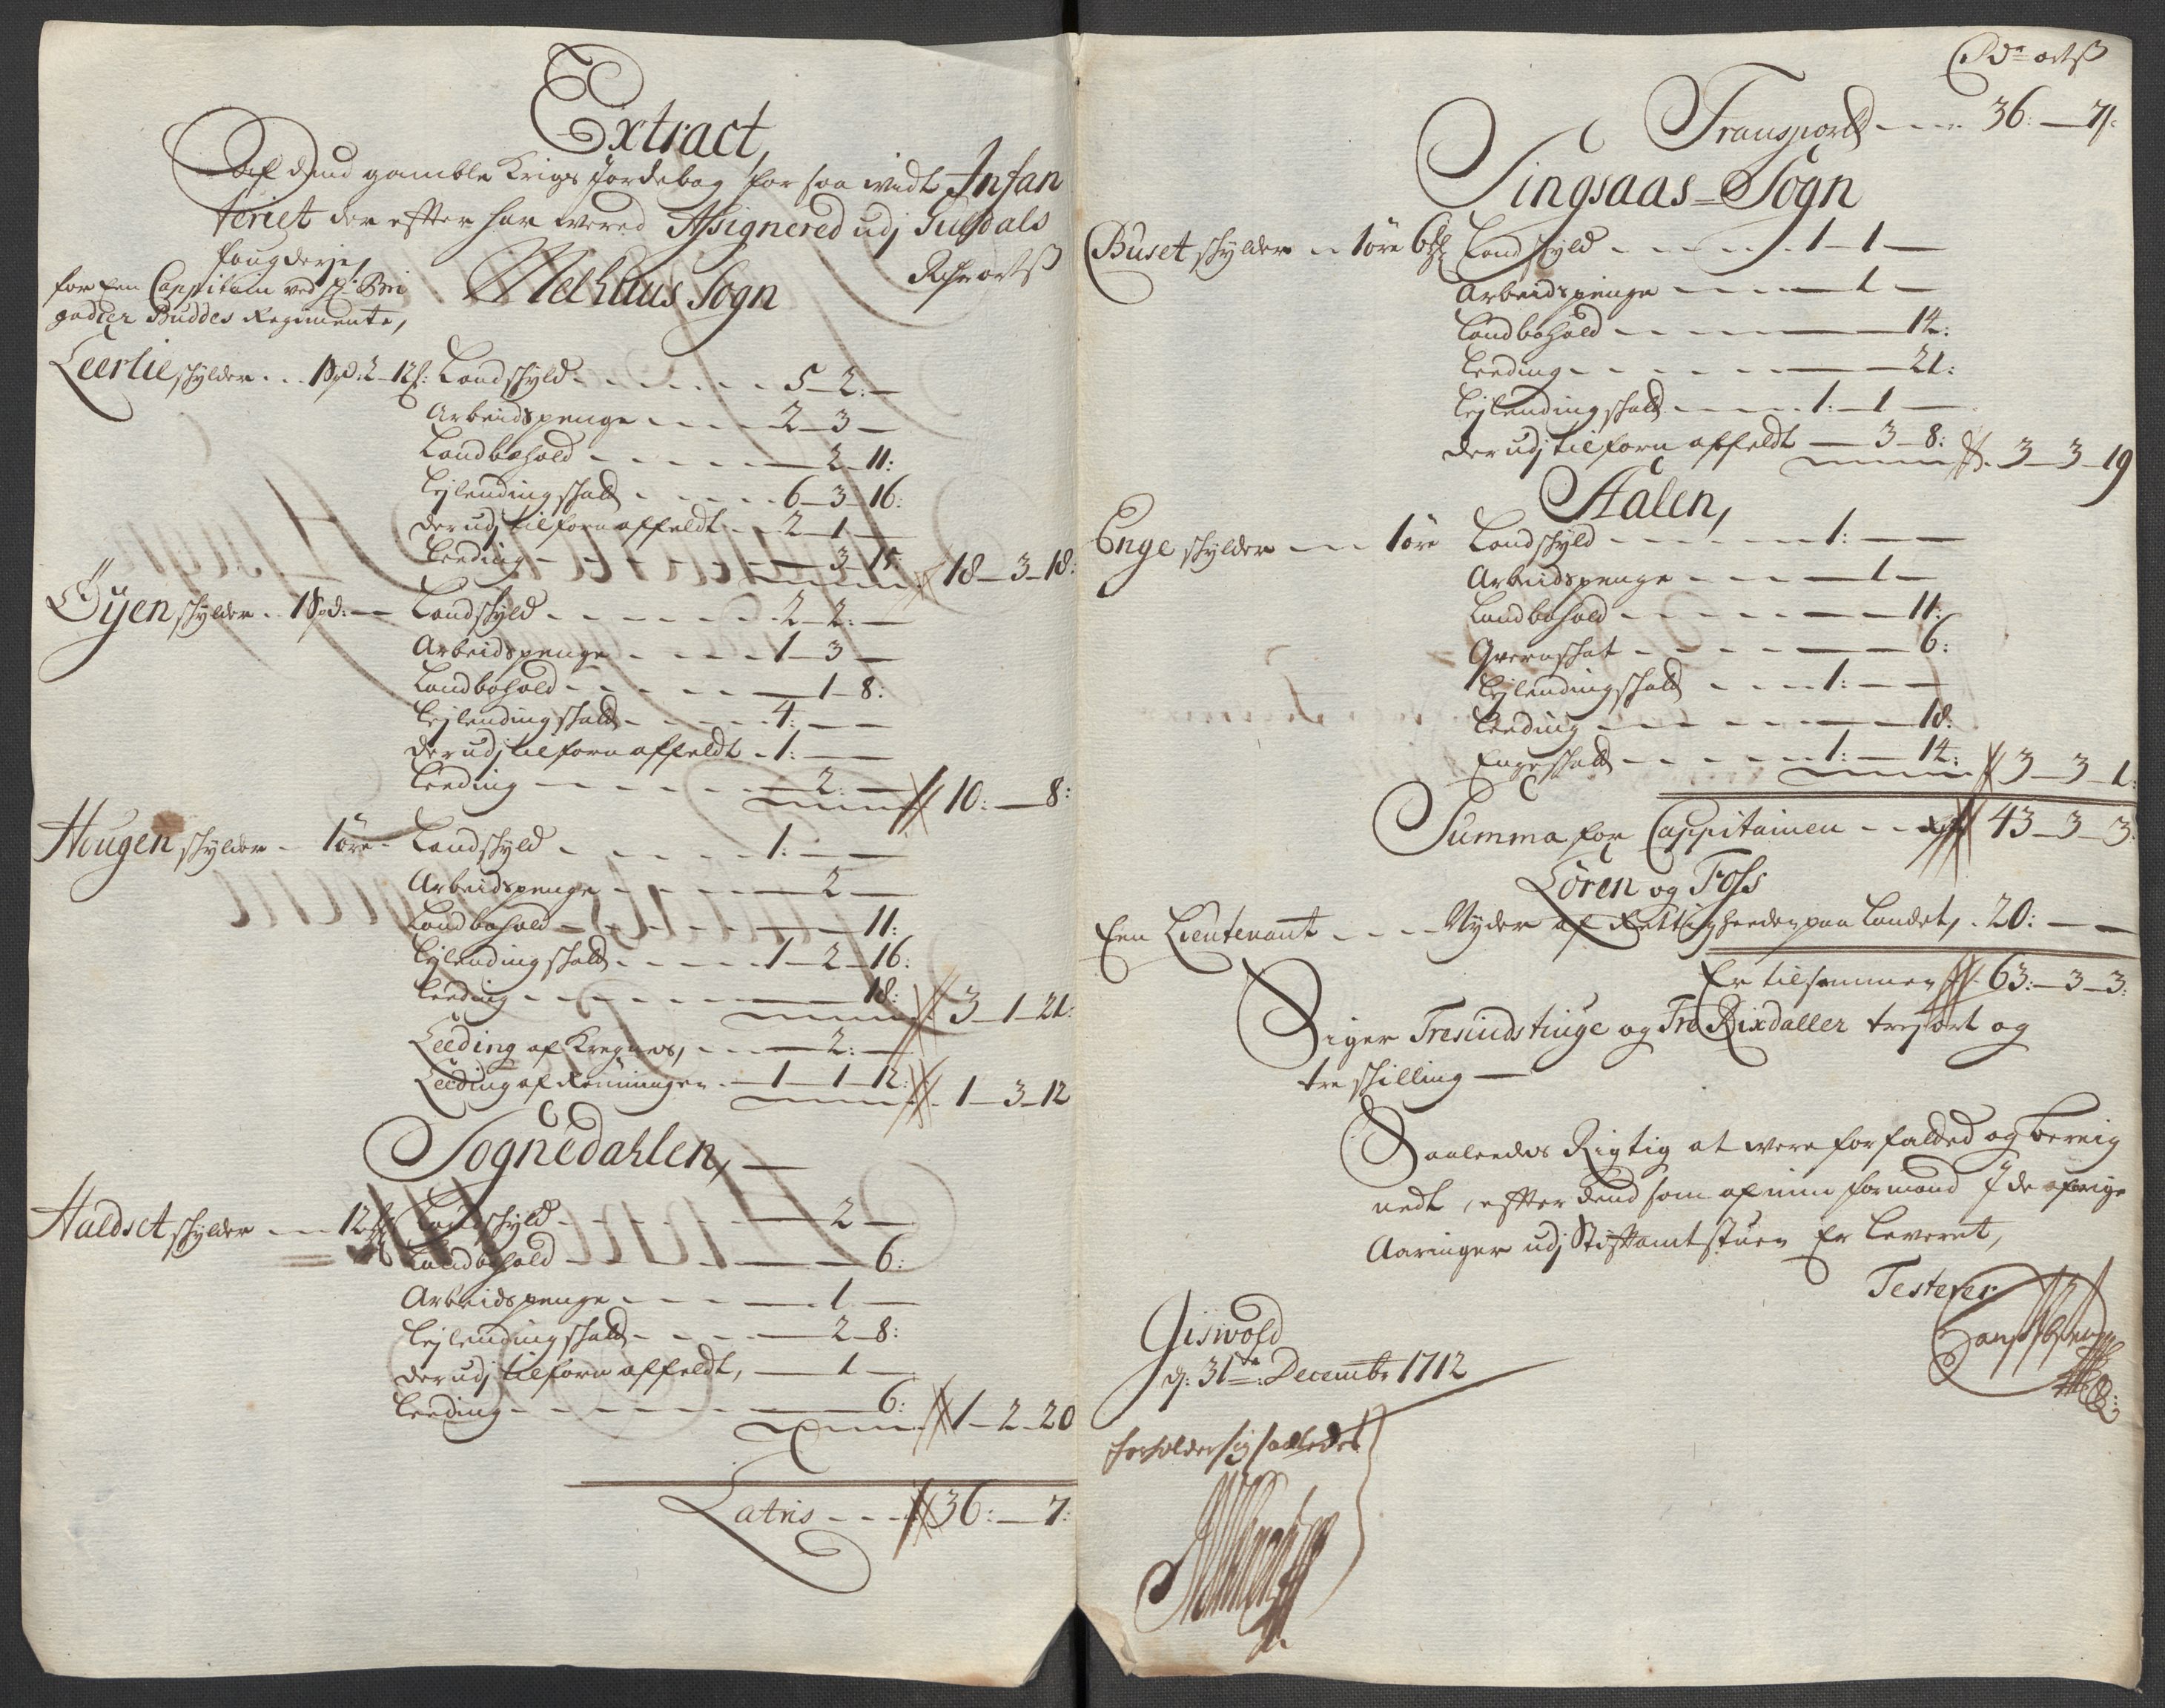 Extract,
Af dend gamble Krigs Jordebog for saa widt Infan
teriet der efter har wered Assignered udj Guldals
fougderje,
for Een Cappitain ved Hr: Bri
gadier Buddes Regimente,
Melhuus Sogn
Rdr ort ß
Leerlie schylder . . 1 Spd: 2 - 12 Landschyld - - - - - 5 - 2: -
Arbeidspenge - - - - 2 - 3 -
Landbohold - - - - - 2 - 11:
Lejlendingschatt - - - - 6 - 3 - 16:
der udj tilforn affeldt - - 2 - 1 -
Leeding - - - - - 3 - 15 18 - 3 - 18:
Öyen schylder . . 1 Spd: - Landschyld - - - - - 2 - 2: -
Arbeidspenge - - - - 1 - 3 -
Landbohold - - - - - 1 - 8:
Lejlendingschatt - - - - 4: - -
der udj tilforn affeldt - 1: - -
Leeding - - - - - 2: - 10: - 8:
Hougen schylder - 1 öre - Landschyld - - - - - 1: - -
Arbeidspenge - - - - 2 -
Landbohold - - - - - 11:
Lejlendingschatt - - - - 1 - 2 - 16:
Leeding - - - - - 18: 3 - 1 - 21:
Leeding af Kregnes, - - - 2: -
Leeding af Rönningen - 1 - 1 - 12: 1 - 3 - 12
Sognedahlen,
Haldset schylder - - 12 Landschyld - - - - 2 -
Landbohold - - - - - 6:
Arbeidspenge - - - - 1 -
Lejlendingschatt - - - - 2 - 8:
der udj tilforn affeldt, - 1 -
Leeding - - - - - 6: 1 - 2 - 20
Latris - - - 36: - 7:
Rdr ort ß
Transport - - - 36: - 7:
Singsaas = Sogn
Buset schylder - - 1 öre 6 Landschyld - - - - - 1 - 1 -
Arbeidspenge - - - - 1 -
Landbohold - - - - - 14:
Leeding - - - - - 21:
Lejlendingschatt - - - - 1: - 1 -
der udj tilforn affeldt - 3 - 8: 3 - 3 - 19
Aalen,
Enge schylder - - - 1 öre Landschyld - - - - - 1: - -
Arbeidspenge - - - - 1 -
Landbohold - - - - - 11:
Qvernschat - - - - - 6:
Lejlendingschatt - - - 1: - -
Leeding - - - - - 18:
Engeschatt - - - - - 1: - 14: 3 - 3 - 1:
Summa for Cappitainen - - 43 - 3 - 3:
Lören og Foss
Een Lieutenant - - - Nyder af Rettigheeden paa Landet, . 20: - -
Er tilsammen 63: - 3 - 3:
Siger Tresindstiuge og Tre Rixdaller trej ort og
tre schilling -
Saaleedes Rigtig at were forfalded og bereig
nedt, efter dend som af min formand J de afvige
Aaringer udj Stiftamtstuen Er leveret,
Testerer
Giswold
d: 31te: Decembr 1712
forholder sig saaledes